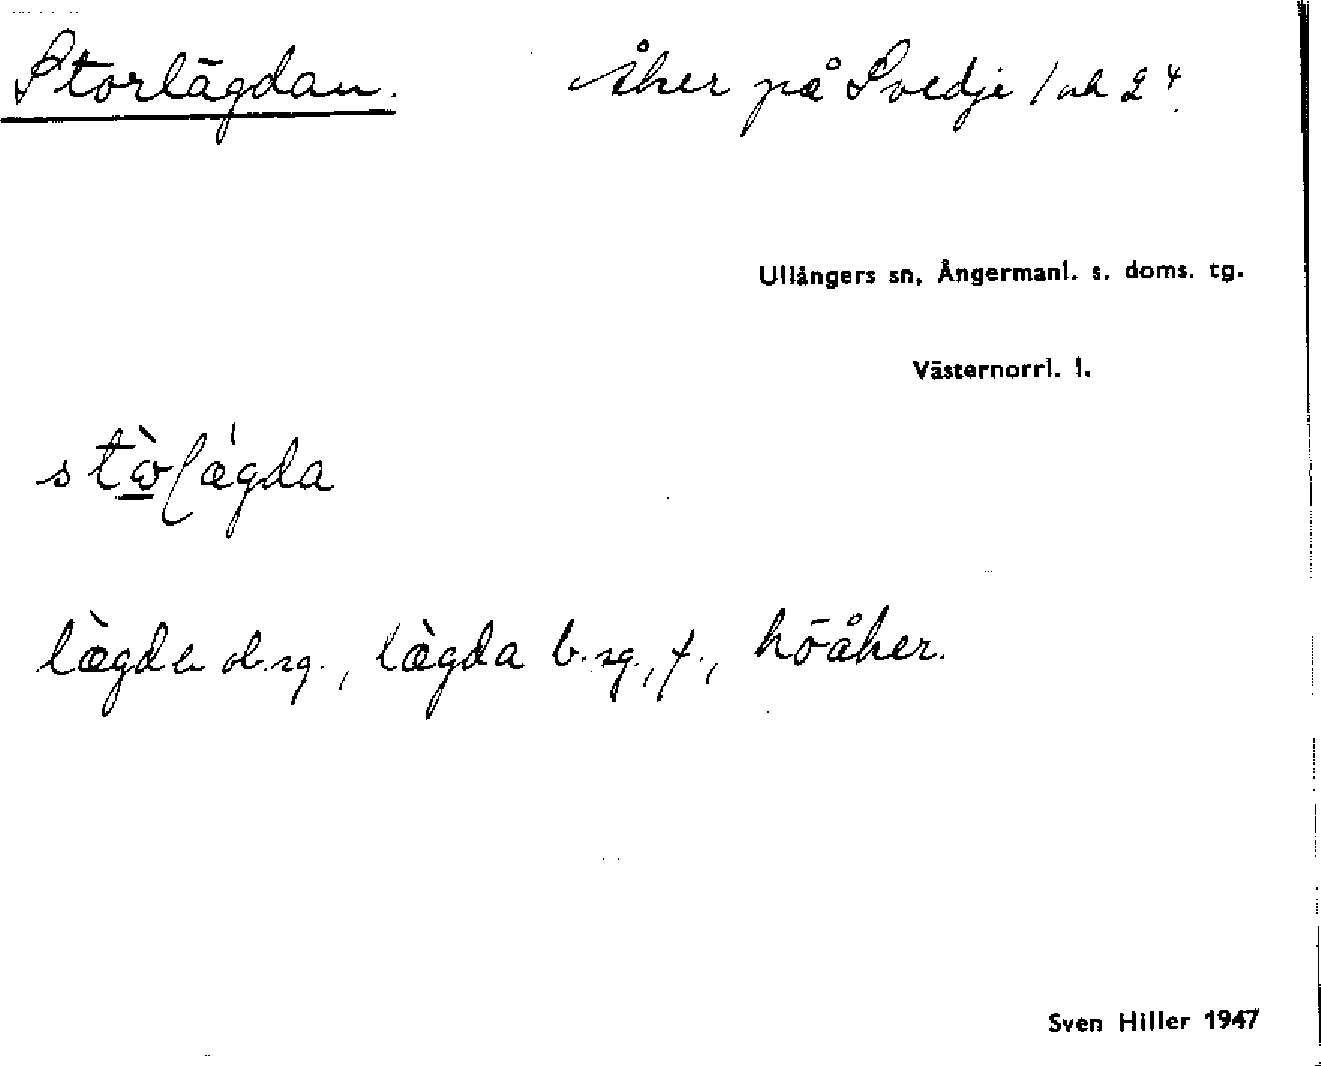 Storlägdan. åker på Svedje 1 och 2 4.
Ullångers sn, Ångermanl. s. doms. tg.
Västernorrl. l.
lægda b.sg., f., höåker.
Sven Hiller 1947